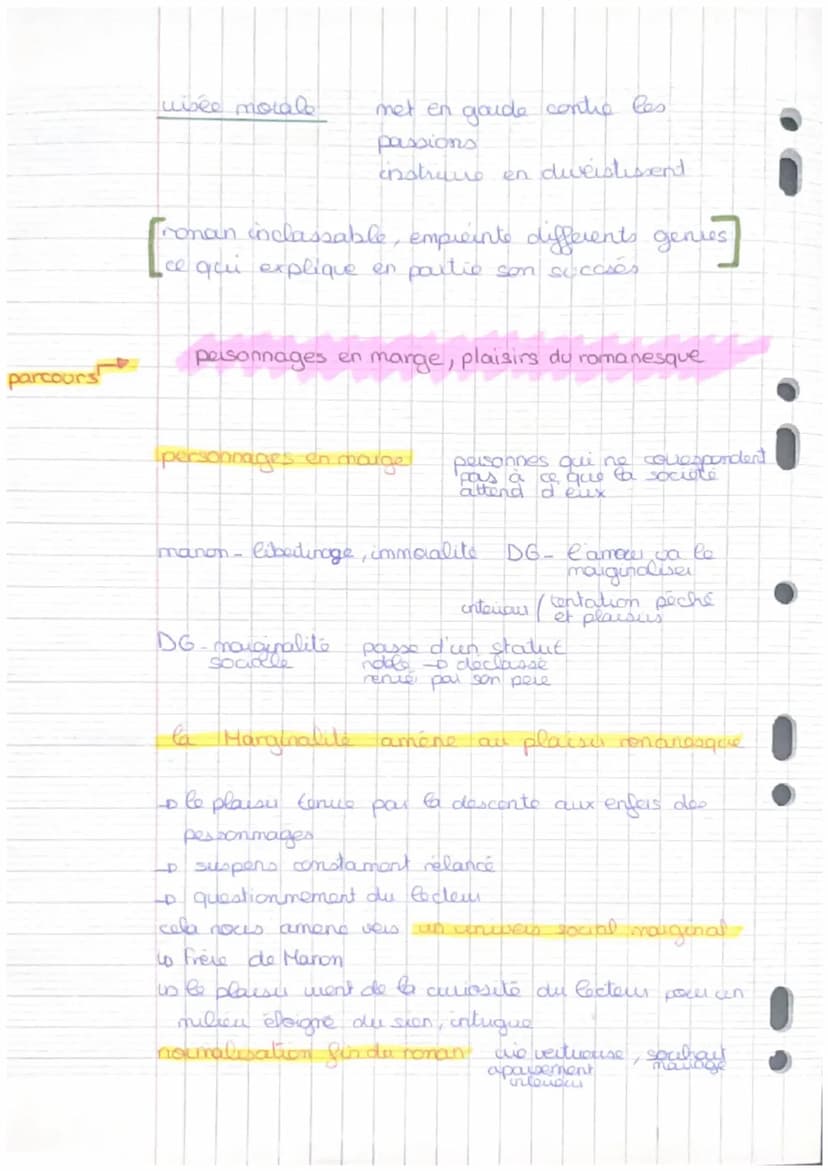 visée morale met en garde contre les
passions
instruire en divertissent
[roman inclassable, empreinte différents genres]
[ce qui explique en partie son succès]
personnages en marge, plaisirs du romanesque
parcours
personnages en marge personnes qui ne correspondent
pas à ce que la société
attend d'eux
manon - libertinage, immoralité DG - l'amour va le
marginaliser
intérieur / tentation péché
et plaisirs
DG - marginalité passe d'un statut
sociale noble → déclassé
renié par son père
la Marginalité amène au plaisir romanesque
→ le plaisir tenue par la descente aux enfers des
personnmages
→ suspens constamant rélancé
→ questionnement du lecteur
cela nous amène vers un univers social marginal
↳ Frère de Manon
↳ le plaisir vient de la curiosité du lecteur pour un
milieu éloigné du sien, intrigue
normalisation fin du roman vie vertueuse, souhait
apaisement mariage
intérieur